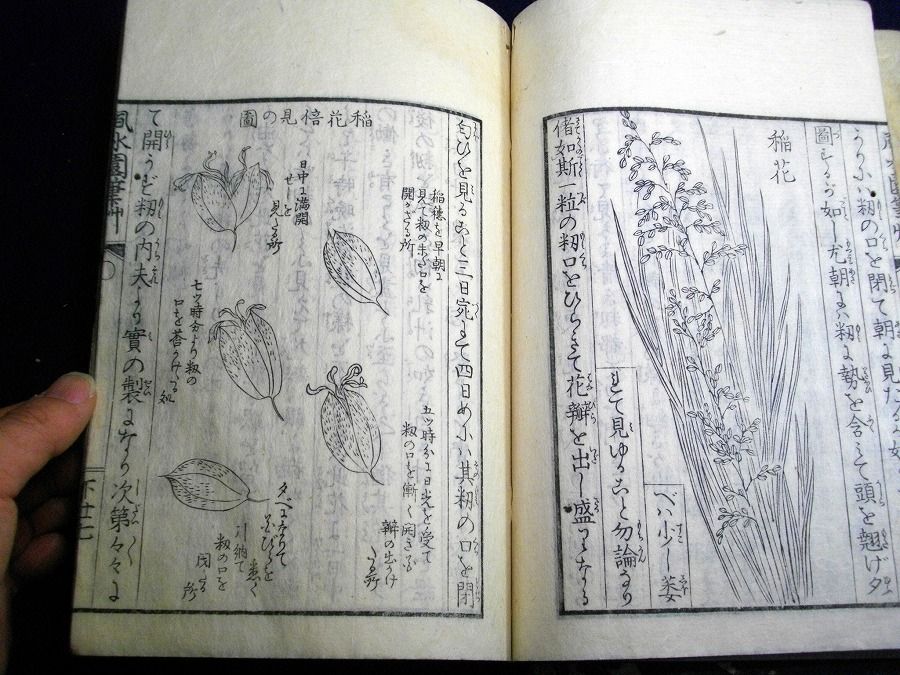 うりハ籾の口を閉て朝に見た
圖するが如し尤朝にハ籾に勢を含て頭を翹げ夕
稲花
べハ少し萎
れて見ゆること勿論なり
偖如斯一粒の籾口をひらきて花瓣を出し盛りなる
匂ひを見ること三日宛にて四日めにハ其籾の口を閉
稲花倍見の圖
稲穂を早朝に
見て籾の未だ口を
開かざる所
五ツ時分に日光を受て
籾の口を漸く開き
瓣の出かけ
たる所
日中に満開
せしを
見たる所
七ツ時分より籾の
口を莟かける処
夕べになりて
悉く
引納て
籾の口を
閉たる
所
て開かず籾の内夫より實の製になり次第々々に
下 廿七